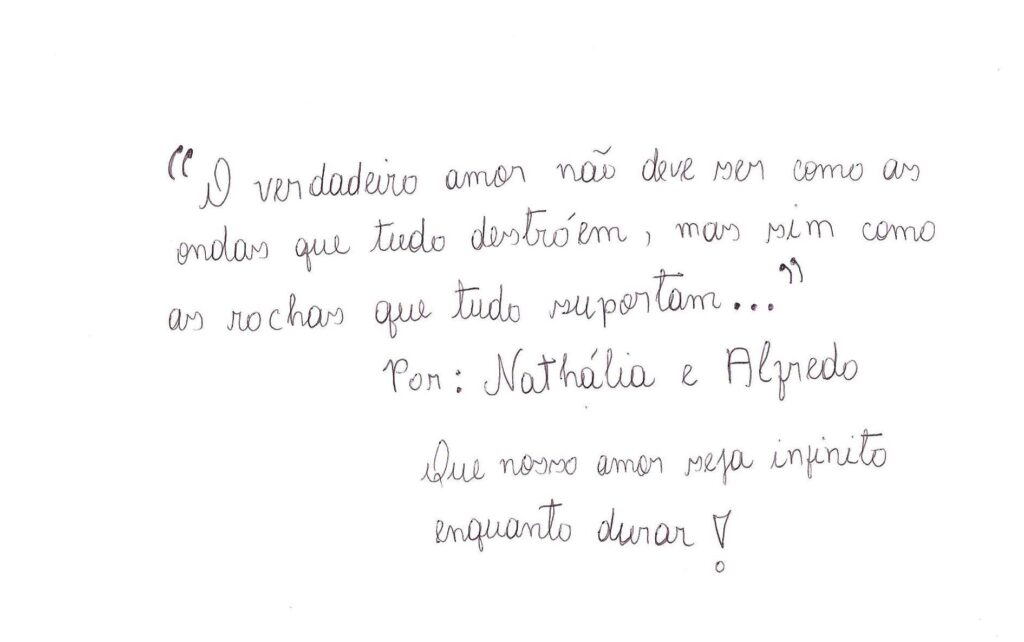 "O verdadeiro amor não deve ser como as
ondas que tudo destróem, mas sim como
as rochas que tudo suportam..."
Por: Nathália e Alfredo
Que nosso amor seja infinito
enquanto durar!